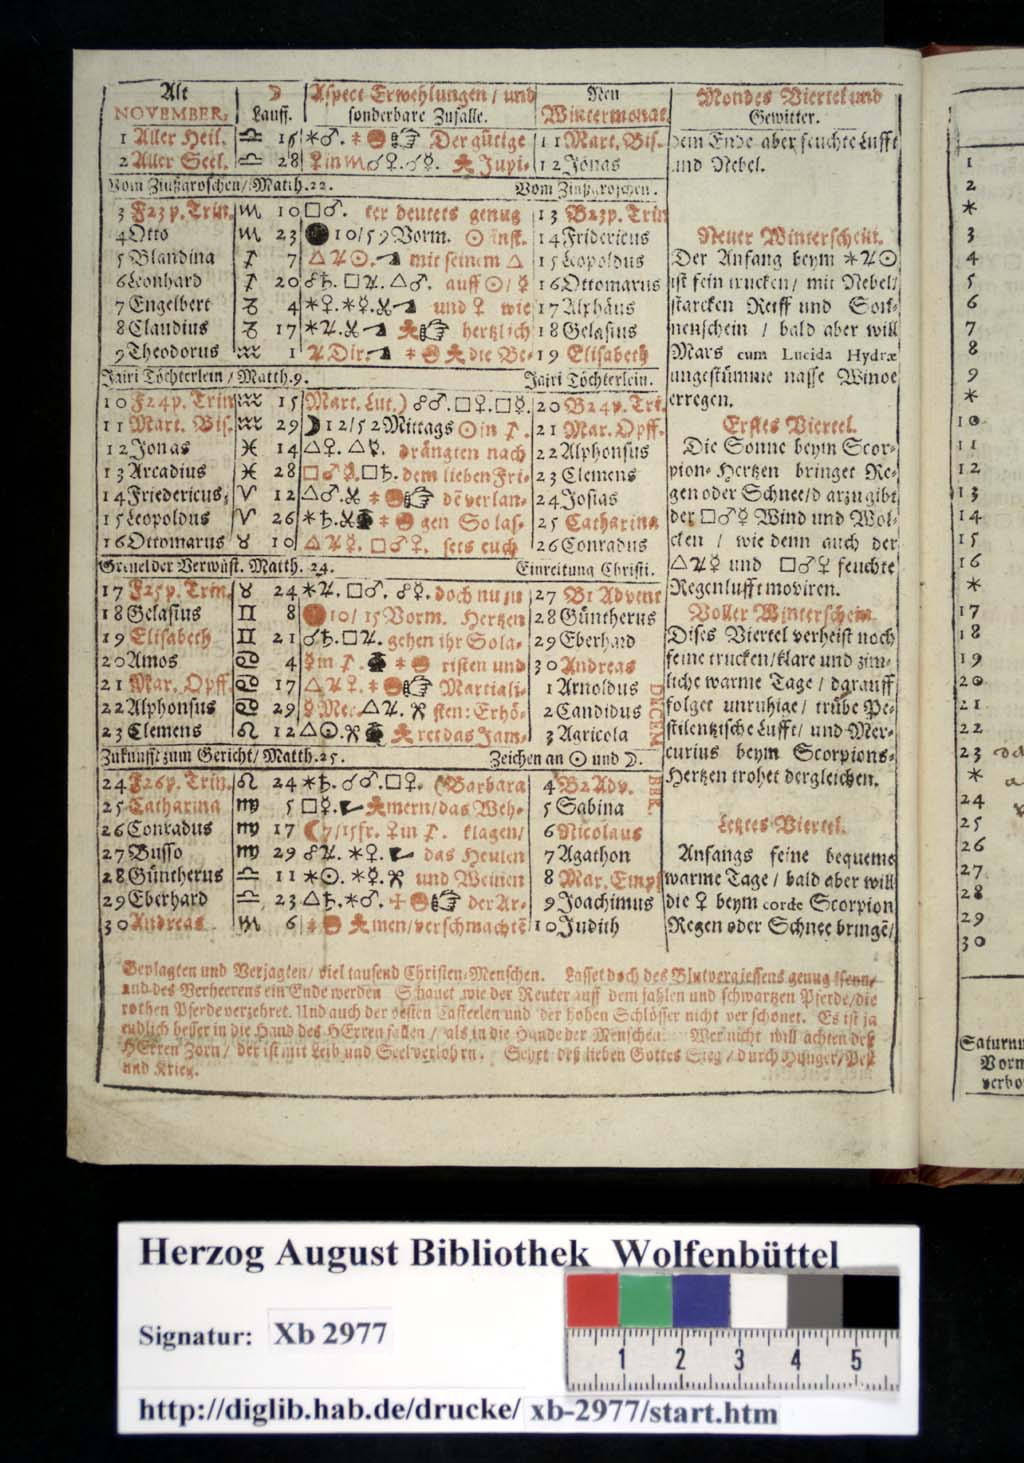 Alt
NOVEMBER,
☽
Lauff.
Aspect Erwehlungen / und
sonderbare Zufälle.
Neu
Wintermonat.
Mondes Viertel und
Gewitter.
1 Aller Heil. ♎ 16 ✶♂. Der gütige 11 Mart. Bis.
2 Aller Seel. ♎ 28 ♀ in ♏ ☌♀. ☌☿. Jupi- 12 Jonas
Vom Zinßgroschen / Matth. 22. Vom Zinßgroschen.
3 F23 p. Trin. ♏ 10 □♂. ter deutets genug 13 B23p. Trin
4 Otto ♏ 23 ● 10/59 Vorm. ☉ inst. 14 Fridericus
5 Blandina ♐ 7 △♃☉. mit seinem △ 15 Leopoldus
6 Leonhard ♐ 20 ☍♄. □♃. △♂. auff ☉/ ☿ 16 Ottomarus
7 Engelbert ♑ 4 ✶♀. ✶☿. und ♀ wie 17 Alphäus
8 Claudius ♑ 17 ✶♃. hertzlich 18 Gelasius
9 Theodorus ♒ 1 ♃ Dir. die Be- 19 Elisabeth
Jairi Töchterlein / Matth. 9. Jairi Töchterlein.
10 F24p. Trin ♒ 15 Mart. Lut.) ☍♂. □♀. □☿. 20 B24p. Tri.
11 Mart. Bis. ♒ 29 ☽ 12/52 Mittags ☉ in ♐. 21 Mar. Opff.
12 Jonas ♓ 14 △♀. △☿. drängten nach 22 Alphonsus
13 Arcadius ♓ 28 □♂☿. □♄. dem lieben Fri- 23 Clemens
14 Friedericus, ♈ 12 △♂. dē verlan- 24 Josias
15 Leopoldus ♈ 26 ✶♄. gen So las- 25 Catharina
16 Ottomarus ♉ 10 △♃☿. □♂♀. sets euch 26 Conradus
Greuel der Verwüst. Matth. 24. Einreitung Christi.
17 F25p. Trin. ♉ 24 ✶♃. □♂. ☍☿. doch nu zu 27 B1 Advent
18 Gelasius ♊ 8 10/15 Vorm. Hertzen 28 Güntherus
19 Elisabeth ♊ 21 ☍♄. □♃. gehen ihr Sola- 29 Eberhard
20 Amos ♋ 4 ☿ in ♐. risten und 30 Andreas
21 Mar. Opff. ♋ 17 △♃♀. Martiali- 1 Arnoldus
22 Alphonsus ♋ 29 ☿ Mer. △♃. sten: Erhö- 2 Candidus
23 Clemens ♌ 12 △☉. ret das Jam- 3 Agricola
DECEM
BER.
Zukunfft zum Gericht / Matth. 25. Zeichen an ☉ und ☽.
24 F26p. Trin. ♌ 24 ✶♄. ☌♂. □♀. (Barbara 4 B2 Adv.
25 Catharina ♍ 5 □☿. mern/das Weh- 5 Sabina
26 Conradus ♍ 17 ☾ 7/15 fr. ♀ in ♐. klagen/ 6 Nicolaus
27 Busso ♍ 29 ☍♃. ✶♀. das Heulen 7 Agathon
28 Güntherus ♎ 11 ✶☉. ✶☿. und Weinen 8 Mar. Empf
29 Eberhard ♎ 23 △♄. ✶♂. der Ar- 9 Joachimus
30 Andreas ♏ 6 men/verschmachtē 10 Judith
dem Ende aber feuchte Lufft
und Nebel.
Neuer Winterschein.
Der Anfang beym ✶♃☉
ist fein trucken/ mit Nebel/
starcken Reiff und Son-
nenschein / bald aber will
Mars cum Lucida Hydræ
ungestümme nasse Winde
erregen.
Erstes Viertel.
Die Sonne beym Scor-
pion-Hertzen bringet Re-
gen oder Schnee/darzu gibt
der □♂☿ Wind und Wol-
cken / wie denn auch der
△♃☿ und □♂♀ feuchte
Regenlufft moviren.
Voller Winterschein.
Dises Viertel verheist noch
feine trucken/klare und zim-
liche warme Tage / darauff
folget unruhige/ trübe Pe-
stilentzische Lufft/ und Mer-
curius beym Scorpions-
Hertzen trohet dergleichen.
Letztes Viertel.
Anfangs feine bequeme
warme Tage / bald aber will
die ♀ beym corde Scorpion
Regen oder Schnee bringē/
Geplagten und Verjagten/ viel tausend Christen-Menschen. Lasset doch des Blutvergiessens genug seyn/
und des Verheerens ein Ende werden Schauet wie der Reuter auff dem fahlen und schwartzen Pferde/die
rothen Pferde verzehret. Und auch der vesten Casteelen und der hohen Schlösser nicht verschonet. Es ist ja
endlich besser in die Hand des HErren fallen / als in die Hande der Menschen. Wer nicht will achten deß
HErren Zorn/ der ist mit Leib und Seel verlohrn. Sehet deß lieben Gottes Sieg / durch Hunger/Pest
und Krieg.
1
2
✶
3
4
5
6
7
8
9
✶
10
11
12
13
14
15
16
✶
17
18
19
20
21
22
23
✶
24
25
26
27
28
29
30
Saturnu
Vorm
verbo
Herzog August Bibliothek Wolfenbüttel
Signatur: Xb 2977
1 2 3 4 5
http://diglib.hab.de/drucke/ xb-2977/start.htm